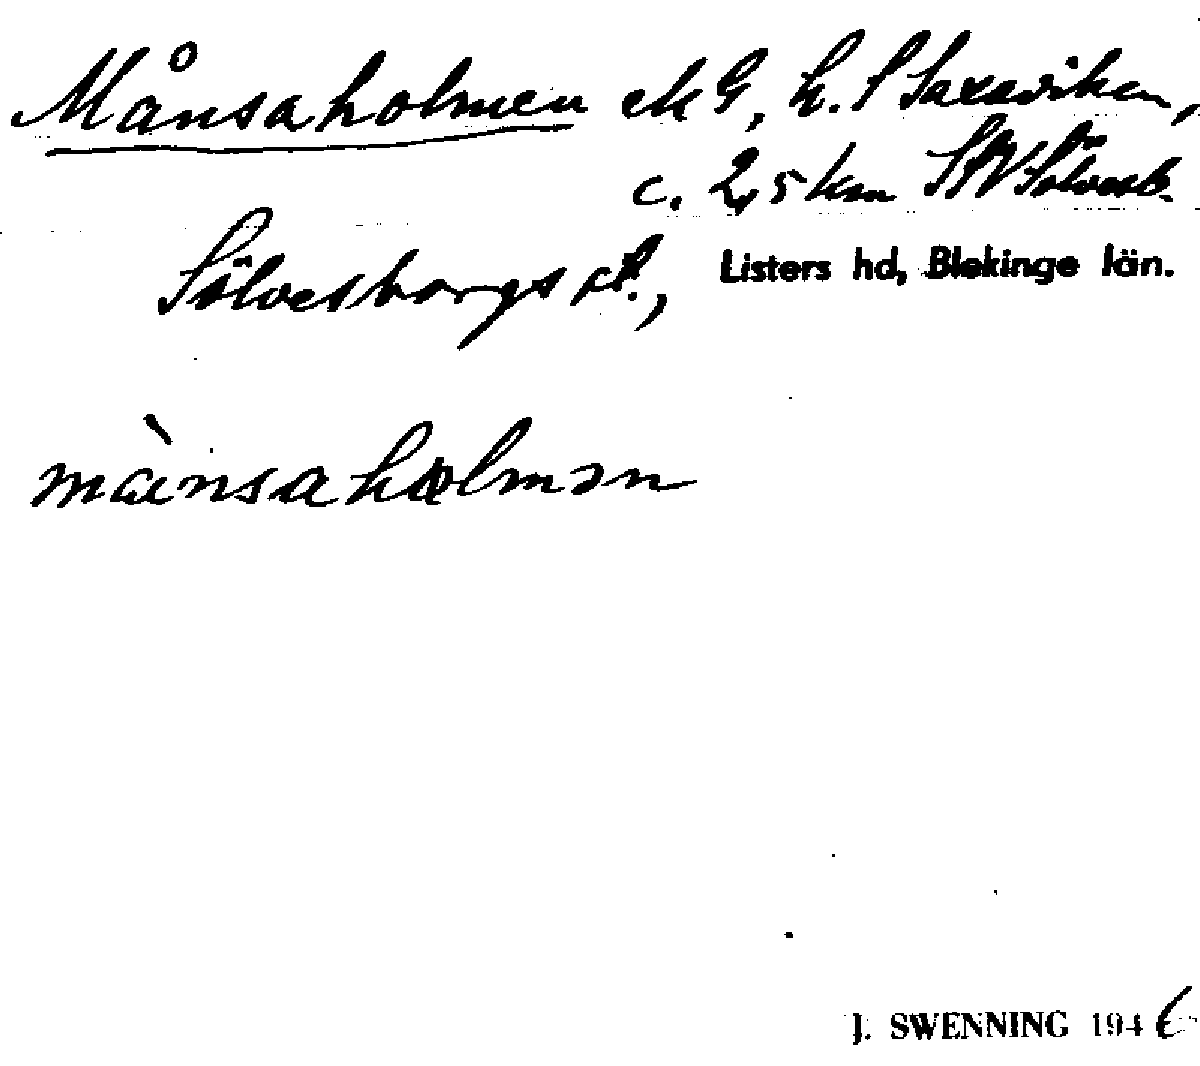 Månsaholmen ek G, h. S Saxaviken,
c. 2,5 km SSV Sölvesb.
Sölvesborgs st., Listers hd, Blekinge län.
mànsahɷlmən
J. SWENNING 1946